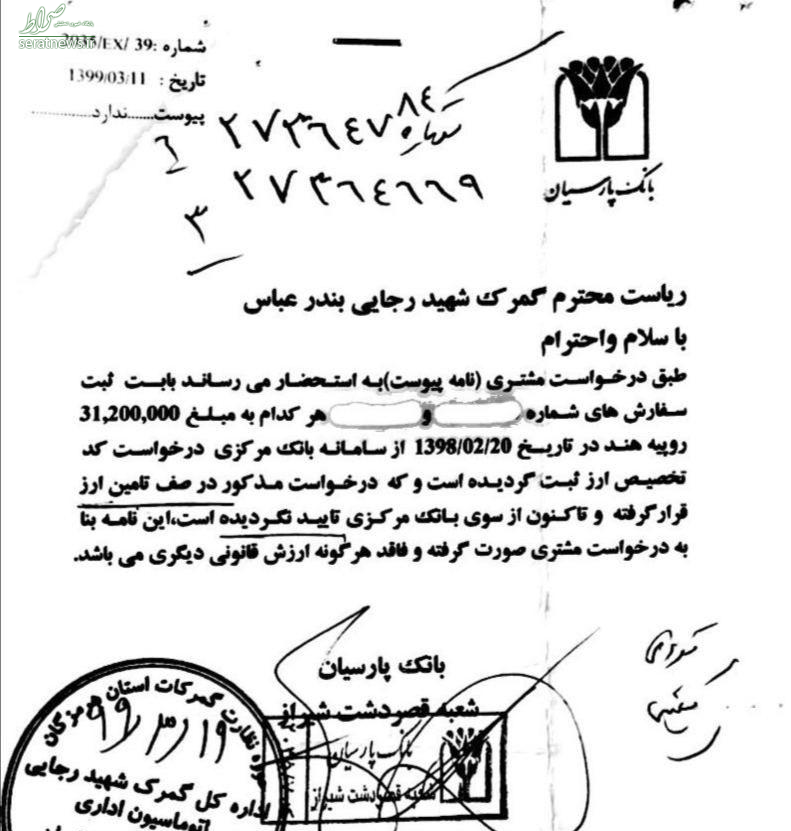 صراط
seratnews.ir
شماره :39 /EX/2035
تاریخ : 1399/03/11
پیوست......ندارد
۲۷۳۶۴۷۸۴
۲۷۳۶۴۶۶۹
۳
بانک پارسیان
ریاست محترم گمرک شهید رجایی بندر عباس
با سلام واحترام
طبق درخواست مشتری (نامه پیوست)به استحضار می رساند بابت ثبت
سفارش های شماره و هر کدام به مبلغ 31,200,000
روپیه هند در تاریخ 1398/02/20 از سامانه بانک مرکزی درخواست کد
تخصیص ارز ثبت گردیده است و که درخواست مذکور در صف تامین ارز
قرارگرفته و تاکنون از سوی بانک مرکزی تایید نگردیده است،این نامه بنا
به درخواست مشتری صورت گرفته و فاقد هرگونه ارزش قانونی دیگری می باشد.
بانک پارسیان
شعبه قصردشت شیراز
بانک پارسیان
شعبه قصردشت شیراز
حوزه نظارت گمرکات استان هرمزگان
۹۹/۳/۱۹
اداره کل گمرک شهید رجایی
اتوماسیون اداری